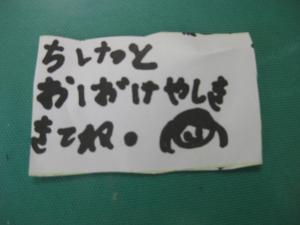 ちけっと
おばけやしき
きてね。